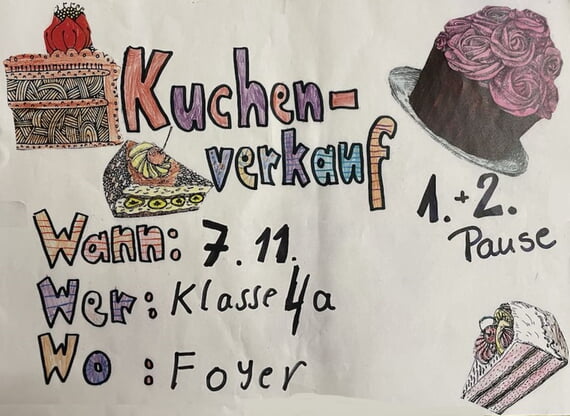 Kuchen-
verkauf
1. + 2.
Pause
Wann: 7.11.
Wer: Klasse 4a
Wo : Foyer